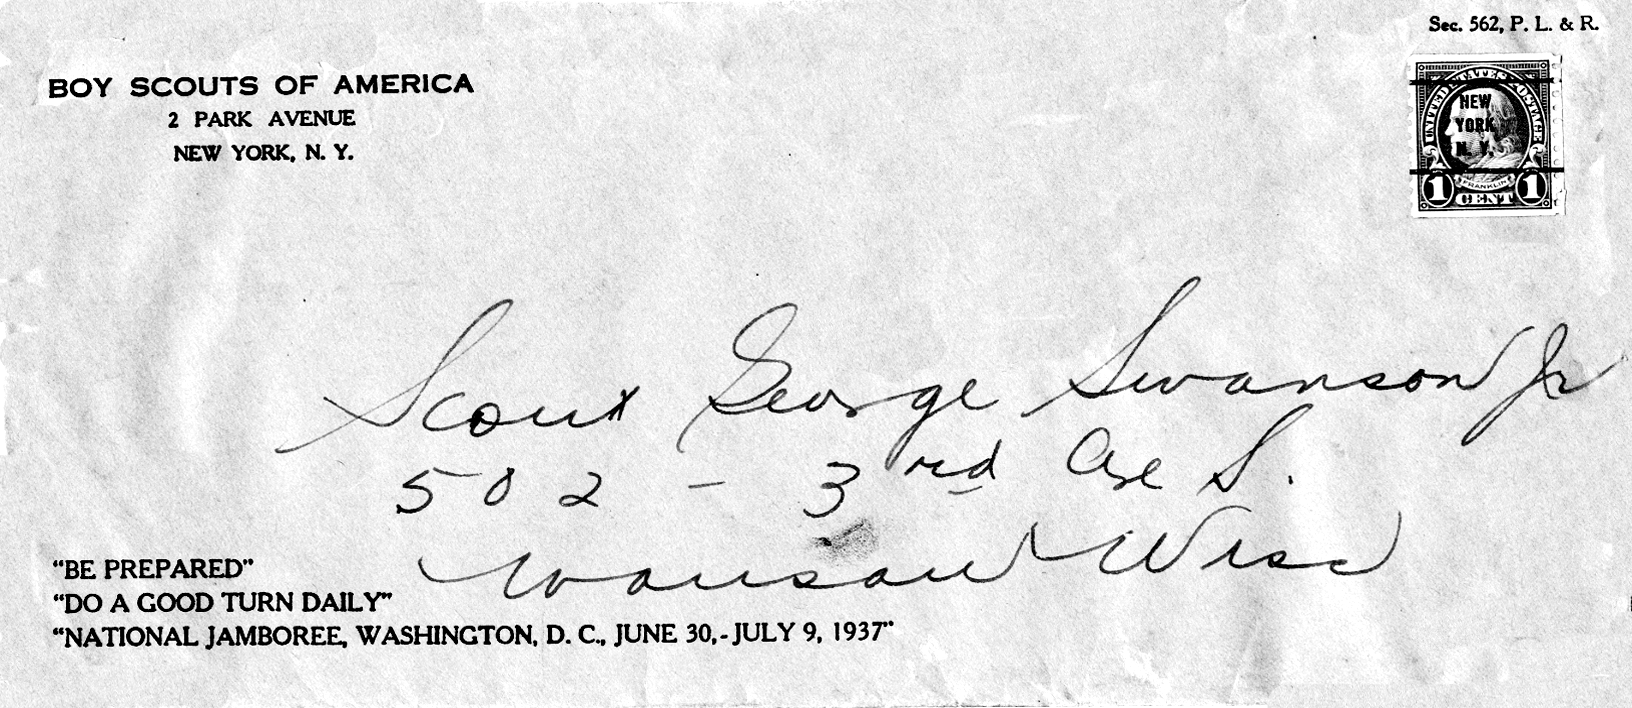 Sec. 562, P. L. & R.
BOY SCOUTS OF AMERICA
2 PARK AVENUE
NEW YORK, N. Y.
UNITED STATES POSTAGE
NEW
YORK
N. Y.
FRANKLIN
1 CENT 1
Scout George Swanson Jr
502 - 3rd Ave S.
Wausau Wisc
"BE PREPARED"
"DO A GOOD TURN DAILY"
"NATIONAL JAMBOREE, WASHINGTON, D. C., JUNE 30,-JULY 9, 1937"